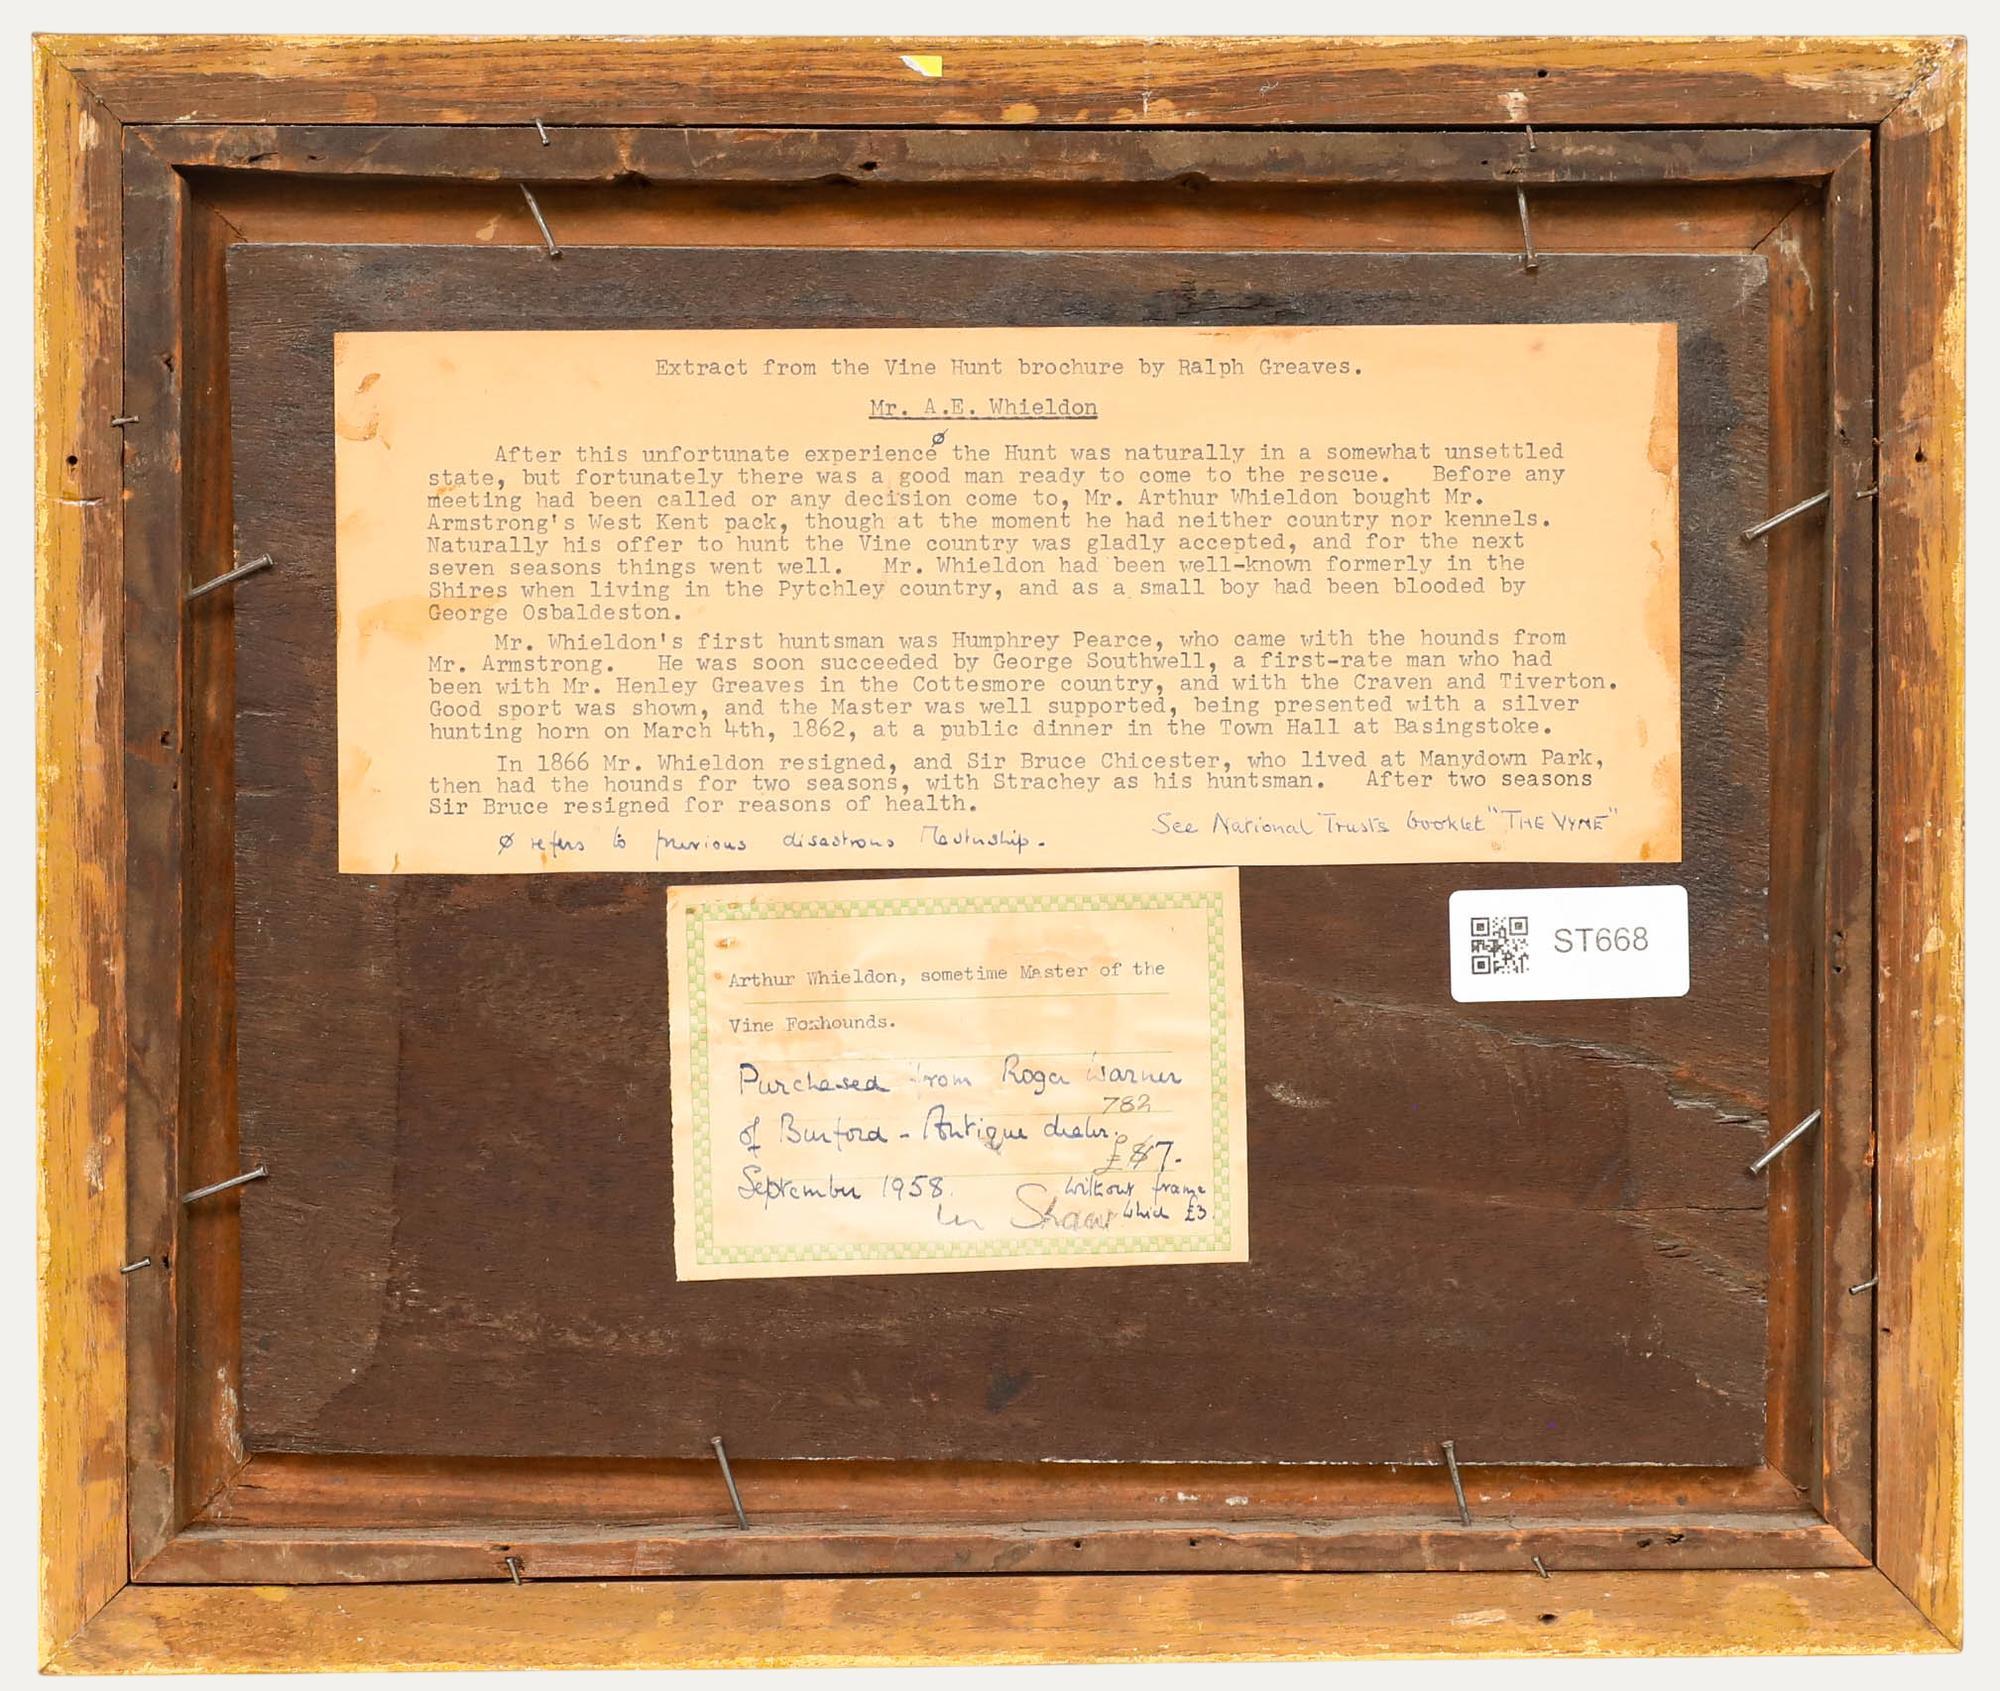 Extract from the Vine Hunt brochure by Ralph Greaves.
Mr. A.E. Whieldon
ø
After this unfortunate experience the Hunt was naturally in a somewhat unsettled
state, but fortunately there was a good man ready to come to the rescue. Before any
meeting had been called or any decision come to, Mr. Arthur Whieldon bought Mr.
Armstrong's West Kent pack, though at the moment he had neither country nor kennels.
Naturally his offer to hunt the Vine country was gladly accepted, and for the next
seven seasons things went well. Mr. Whieldon had been well-known formerly in the
Shires when living in the Pytchley country, and as a small boy had been blooded by
George Osbaldeston.
Mr. Whieldon's first huntsman was Humphrey Pearce, who came with the hounds from
Mr. Armstrong. He was soon succeeded by George Southwell, a first-rate man who had
been with Mr. Henley Greaves in the Cottesmore country, and with the Craven and Tiverton.
Good sport was shown, and the Master was well supported, being presented with a silver
hunting horn on March 4th, 1862, at a public dinner in the Town Hall at Basingstoke.
In 1866 Mr. Whieldon resigned, and Sir Bruce Chicester, who lived at Manydown Park,
then had the hounds for two seasons, with Strachey as his huntsman. After two seasons
Sir Bruce resigned for reasons of health.
See National Trusts booklet "THE VYNE"
ø refers to previous disastrous Mastership.
Arthur Whieldon, sometime Master of the
Vine Foxhounds.
Purchased from Roger Warner
782
of Burford - Antique dealer.
£7.
September 1958.
without frame
which £3
Shaw
ST668